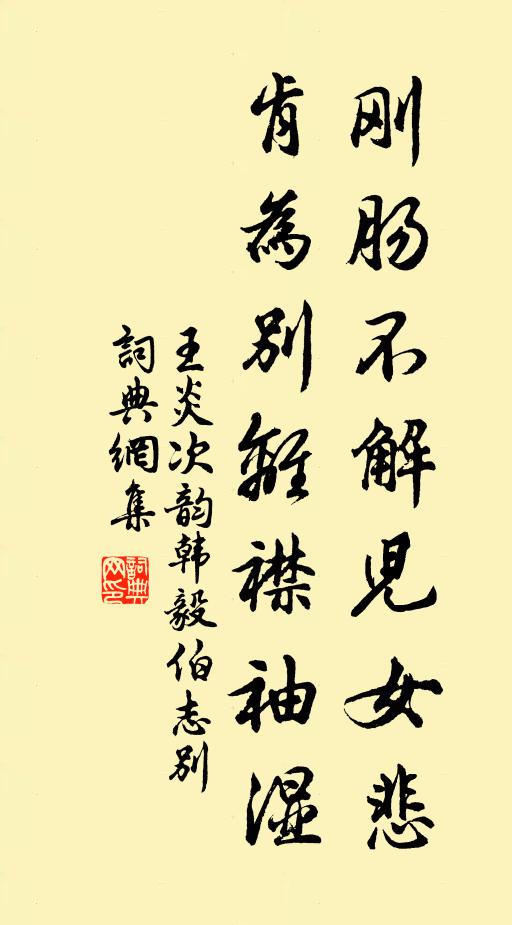 刚肠不解児女悲
肯為别離襟袖湿
王炎次韵韩毅伯志别
詞典網集
詞典网印